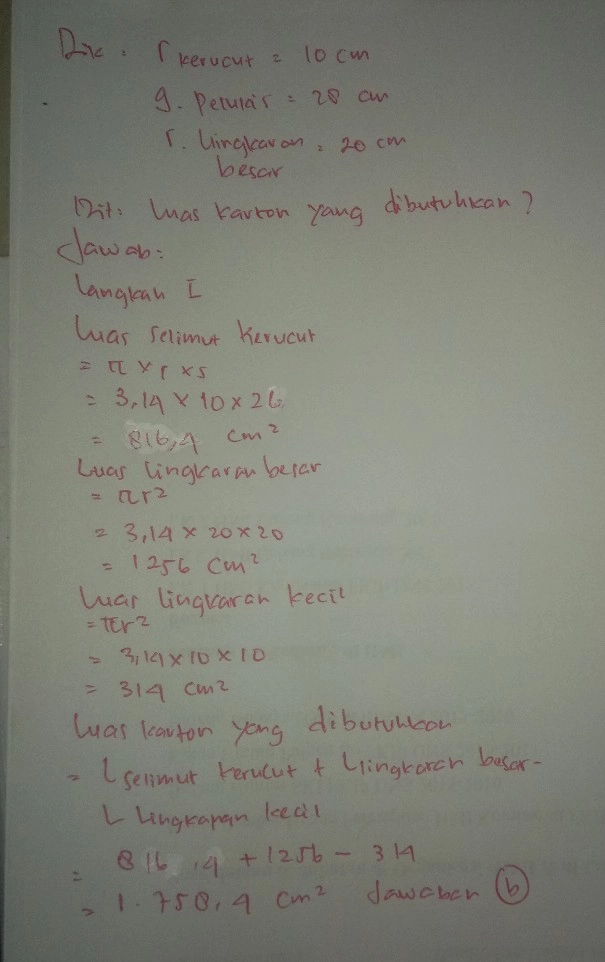 Dik : r kerucut = 10 cm
g. pelukis = 28 cm
r. lingkaran = 20 cm
besar
Dit: luas karton yang dibutuhkan?
Jawab:
langkah I
luas selimut kerucut
= π x r x s
= 3,14 x 10 x 26
= 816,4 cm²
Luas lingkaran besar
= πr²
= 3,14 x 20 x 20
= 1256 cm²
luas lingkaran kecil
= πr²
= 3,14 x 10 x 10
= 314 cm²
luas karton yang dibutuhkan
= L selimut kerucut + L lingkaran besar -
L lingkaran kecil
= 816,4 + 1256 - 314
= 1.758,4 cm² Jawaban b